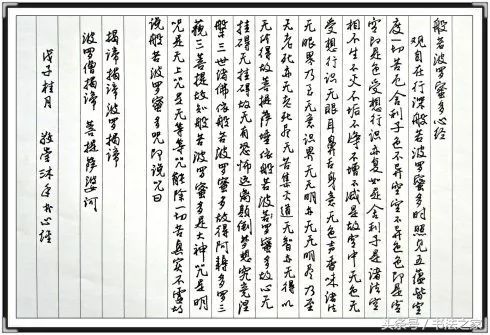 般若波罗蜜多心经
观自在行深般若波罗蜜多时照见五蕴皆空
度一切苦厄舍利子色不异空空不异色色即是空
空即是色受想行识亦复如是舍利子是诸法空
相不生不灭不垢不净不增不减是故空中无色无
受想行识无眼耳鼻舌身意无色声香味触法
无眼界乃至无意识界无无明亦无无明尽乃至
无老死亦无老死尽无苦集灭道无智亦无得以
无所得故菩提萨埵依般若波罗蜜多故心无
挂碍无挂碍故无有恐怖远离颠倒梦想究竟涅
槃三世诸佛依般若波罗蜜多故得阿耨多罗三
藐三菩提故知般若波罗蜜多是大神咒是明
咒是无上咒是无等等咒能除一切苦真实不虚故
说般若波罗蜜多咒即说咒曰
揭谛揭谛波罗揭谛
波罗僧揭谛 菩提萨婆诃
戊子桂月 沐手书心经
头条号 / 书法之家